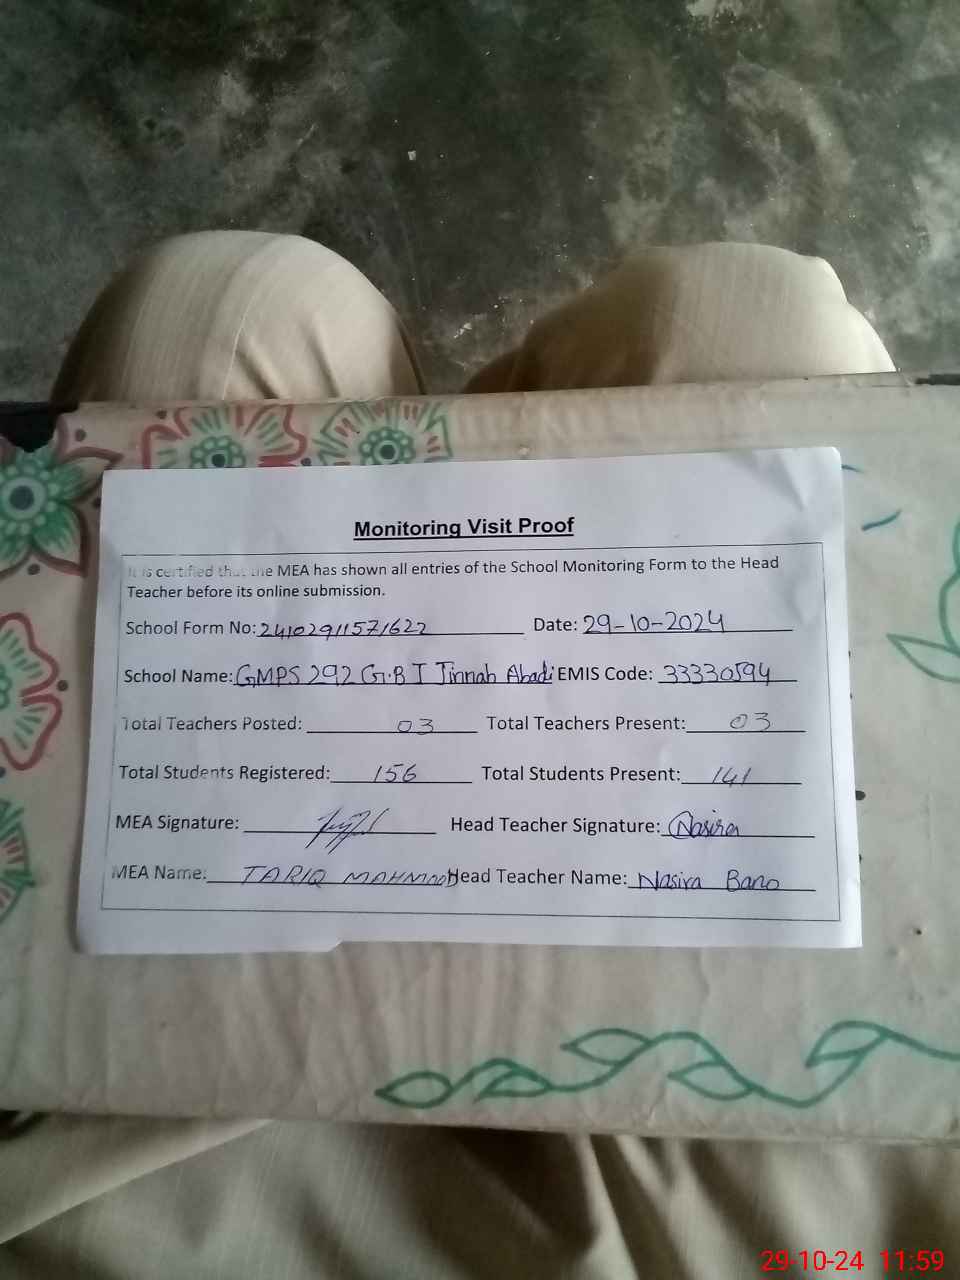 Monitoring Visit Proof
It is certified that the MEA has shown all entries of the School Monitoring Form to the Head
Teacher before its online submission.
School Form No: 24102911571622 Date: 29-10-2024
School Name: GMPS 292 G.B I Jinnah Abadi EMIS Code: 33330594
Total Teachers Posted: 03 Total Teachers Present: 03
Total Students Registered: 156 Total Students Present: 141
MEA Signature: Head Teacher Signature: Nasira
MEA Name: TARIQ MAHMOOD Head Teacher Name: Nasira Bano
29-10-24 11:59